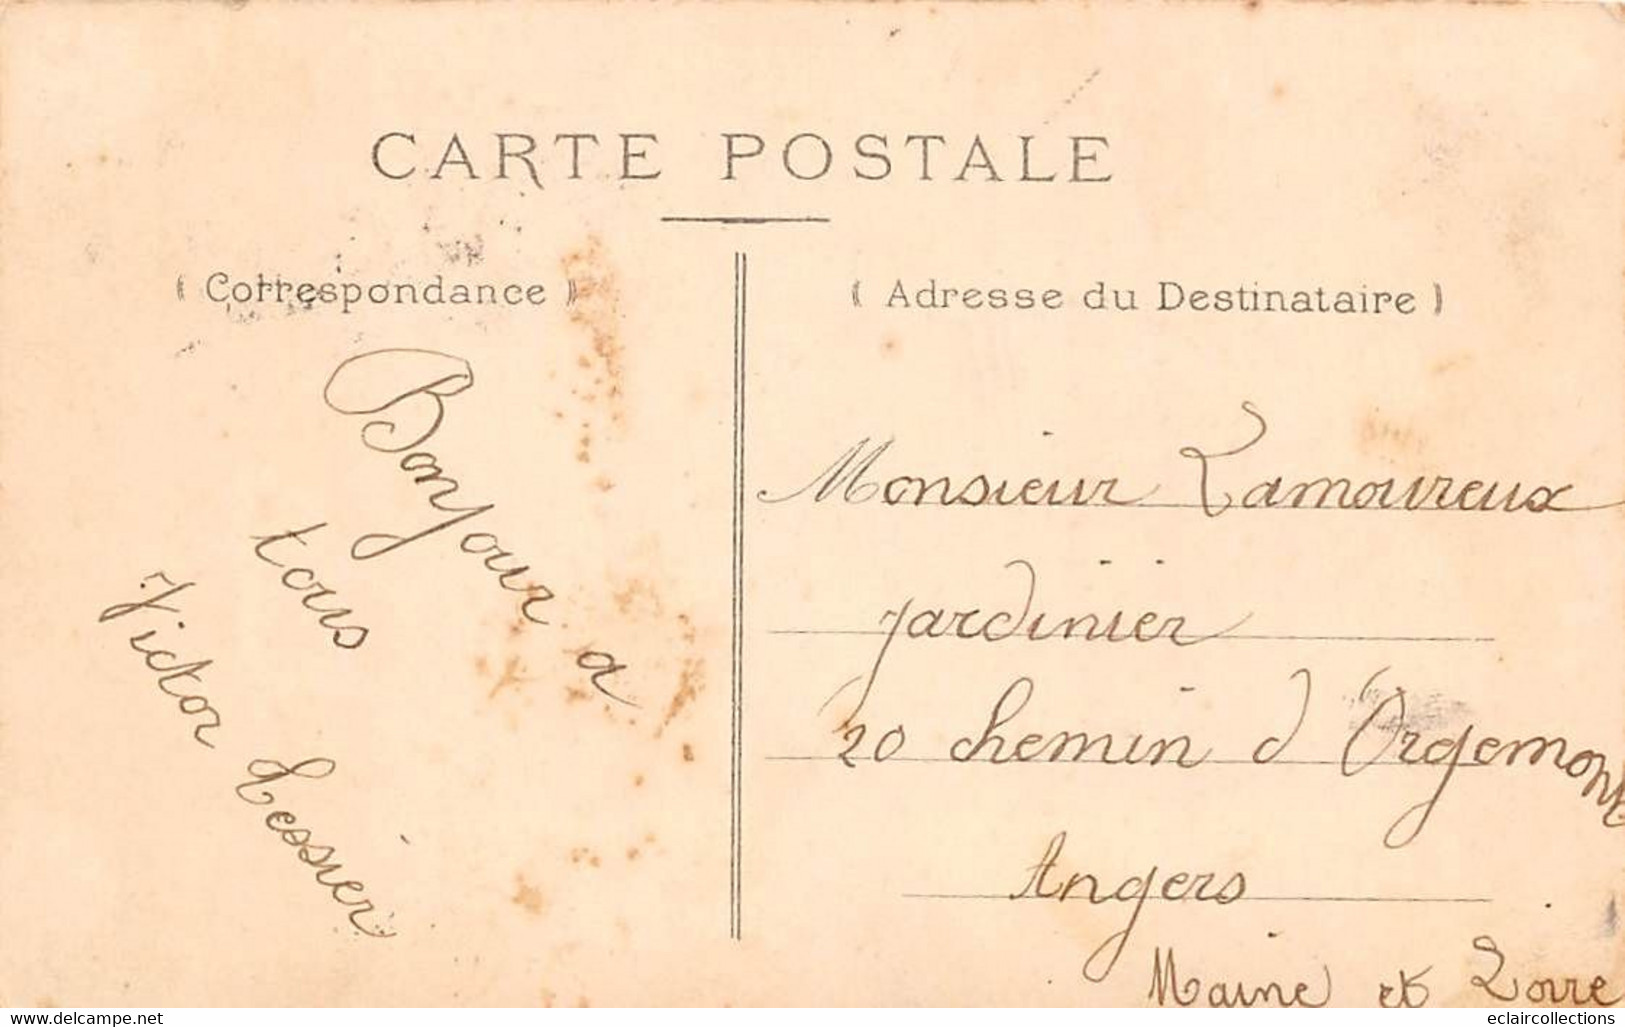 CARTE POSTALE
( Correspondance )
( Adresse du Destinataire )
Bonjour a
tous
Victor Tessier
Monsieur Lamoureux
jardinier
20 chemin d'Orgemont
Angers
Maine et Loire
www.delcampe.net
eclaircollections